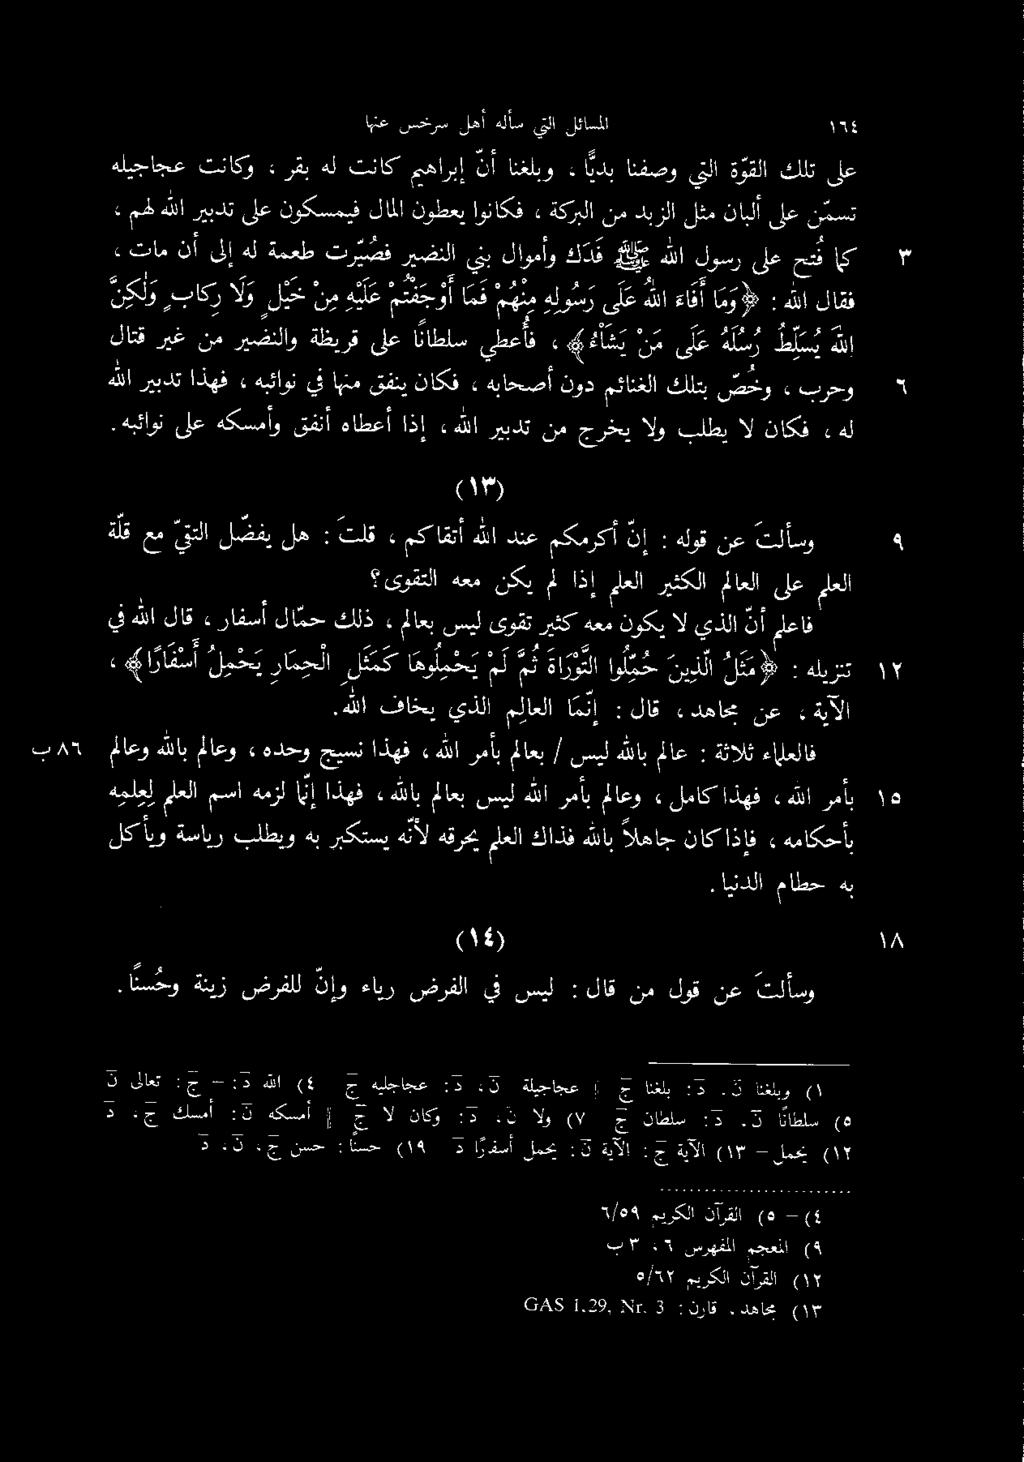 ١٦٤ المسائل التي سأله أهل سرخس عنها
على تلك القوّة التي وصفنا بديًّا ، وبلغنا أنّ إبراهيم كانت له بقر ، وكانت عجاجيله
تسمّن على ألبان مثل الزبد من البركة ، فكانوا يعطون المال فيمسكون على تدبير الله لهم ،
٣ كما فُتح على رسول الله ﷺ فَدَك وأموال بني النضير فصُيّرت طعمة له إلى أن مات ،
فقال الله : ﴿وَمَا أَفَاءَ اللهُ عَلَى رَسُولِهِ مِنْهُمْ فَمَا أَوْجَفْتُمْ عَلَيْهِ مِنْ خَيْلٍ وَلَا رِكابٍ وَلَٰكِنَّ
اللهَ يُسَلِّطُ رُسُلَهُ عَلَى مَنْ يَشَاْءُ﴾ ، فأُعطي سلطانًا على قريظة والنضير من غير قتال
٦ وحرب ، وخُصّ بتلك الغنائم دون أصحابه ، فكان ينفق منها في نوائبه ، فهذا تدبير الله
له ، فكان لا يطلب ولا يخرج من تدبير الله ، إذا أعطاه أنفق وأمسكه على نوائبه.
(١٣)
٩ وسألتَ عن قوله : إنّ أكرمكم عند الله أتقاكم ، قلتَ : هل يفضّل التقيّ مع قلّة
العلم على العالم الكثير العلم إذا لم يكن معه التقوى؟
فاعلم أنّ الذي لا يكون معه كثير تقوى ليس بعالم ، ذلك حمّال أسفار ، قال الله في
١٢ تنزيله : ﴿مَثَلُ الَّذِينَ حُمِّلُوا التَّوْرَاةَ ثُمَّ لَمْ يَحْمِلُوهَا كَمَثَلِ الْحِمَارِ يَحْمِلُ أَسْفَارًا﴾ ،
الآية ، عن مجاهد ، قال : إنّما العالِم الذي يخاف الله.
فالعلماء ثلاثة : عالم بالله ليس / بعالم بأمر الله ، فهذا نسيج وحده ، وعالم بالله وعالم ٨٦ ب
١٥ بأمر الله ، فهذا كامل ، وعالم بأمر الله ليس بعالم بالله ، فهذا إنّما لزمه اسم العلم لِعِلمِهِ
بأحكامه ، فإذا كان جاهلاً بالله فذاك العلم يحرقه لأنّه يستكبر به ويطلب رياسة ويأكل
به حطام الدنيا.
١٨ (١٤)
وسألتَ عن قول من قال : ليس في الفرض رياء وإنّ للفرض زينة وحُسنًا.
١) وبلغنا ن، د: بلغنا ج || عجاجيلة ن، د: عجاجليه ج ٤) الله د: – ج: تعالى ن
٥) سلطانًا ن، د: سلطان ج ٧) ولا ن، د: وكان لا ج || أمسكه ن: أمسك ج، د
١٢) يحمل – ١٣) الآية ج: الآية ن: يحمل أسفرًا د ١٩) حسنًا: حسن ج، ن، د
٤) – ٥) القرآن الكريم ٦/٥٩
٩) المعجم المفهرس ٦، ٣ ب
١٢) القرآن الكريم ٥/٦٢
١٣) مجاهد، قارن: GAS I.29, Nr. 3